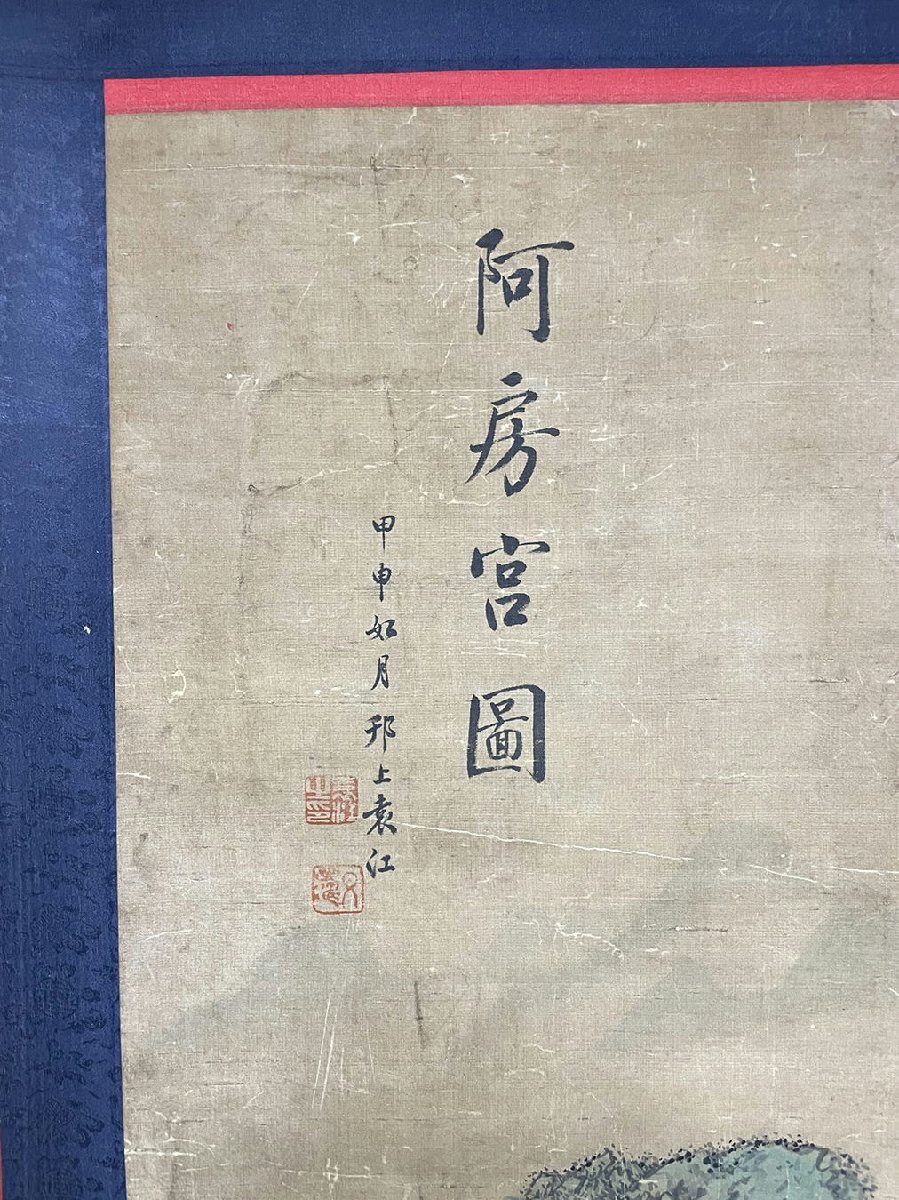 阿房宮圖
甲申如月邗上袁江